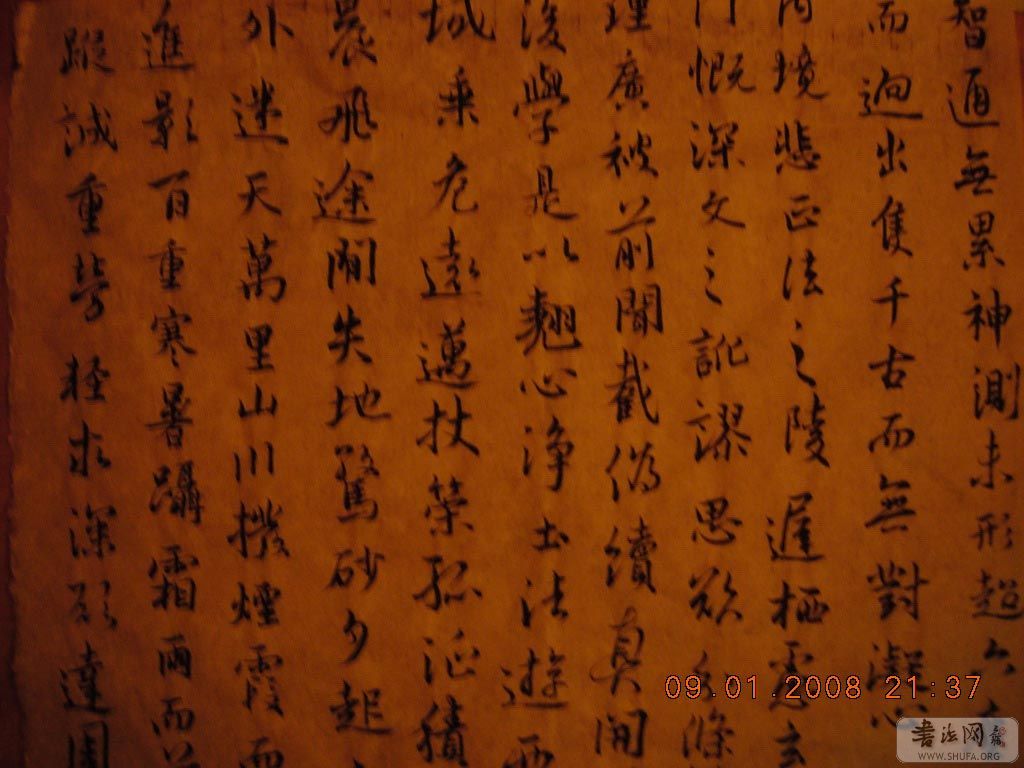 智通無累神測未形超六
而迥出隻千古而無對凝心
內境悲正法之陵遲栖慮玄
門慨深文之訛謬思欲分條
理廣被前聞截偽續真開
後學是以翹心淨土法遊西
域乘危遠邁杖策孤征積
晨飛途間失地驚砂夕起
外迷天萬里山川撥煙霞而
進影百重寒暑躡霜雨而前
蹤誠重勞輕求深願達周
09.01.2008 21:37
书法网
WWW.SHUFA.ORG